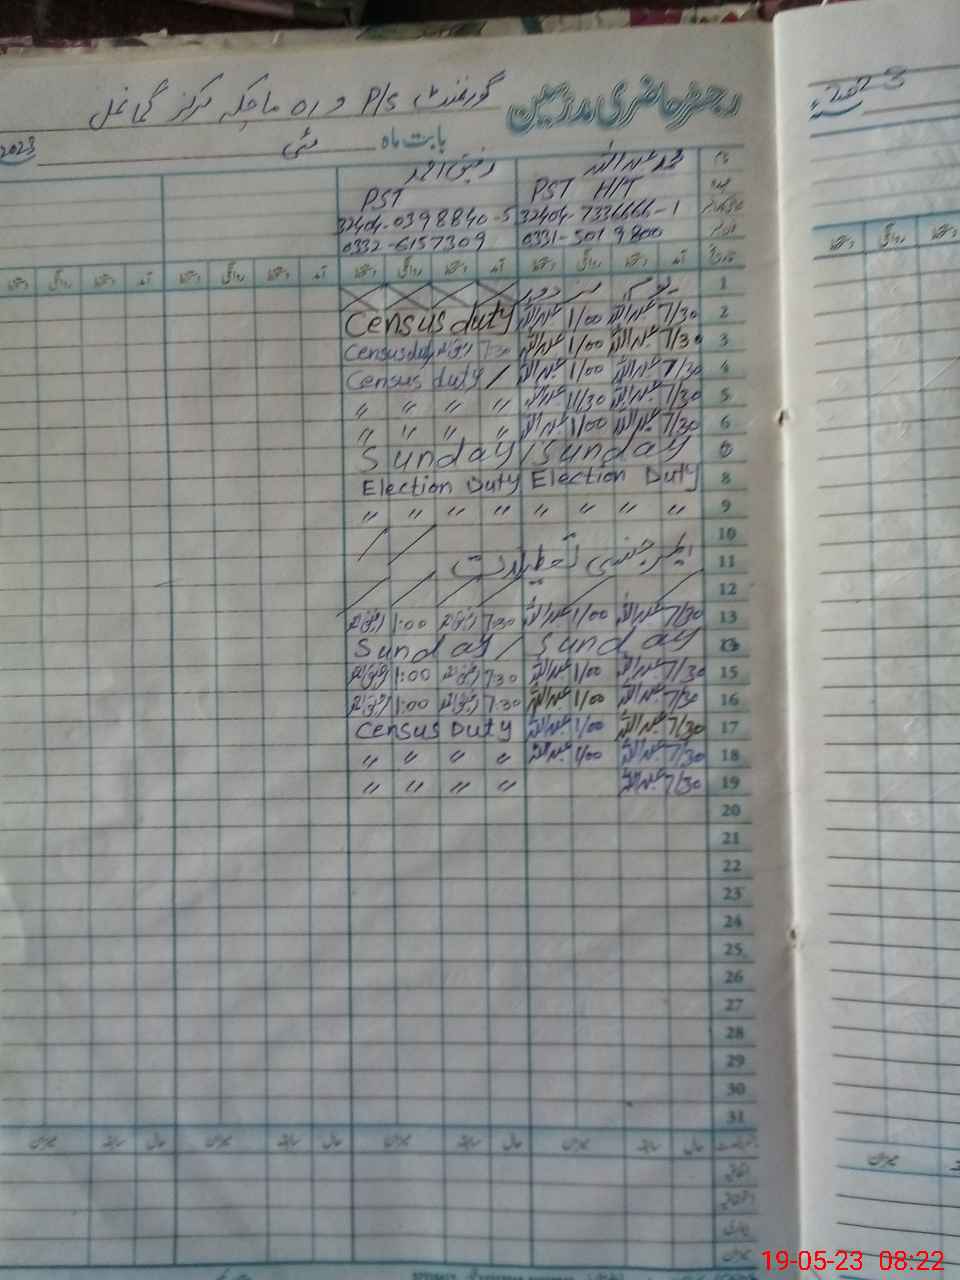 رجسٹر حاضری مدرسین گورنمنٹ P/S
بابت ماہ مئی 2023
2023
نام محمد عبداللہ رفیق احمد
عہدہ PST H/T PST
32404-7336666-1 32404-0398840-5
0331-5019800 0332-6157309
تاریخ آمد دستخط روانگی دستخط آمد دستخط روانگی دستخط آمد دستخط روانگی دستخط آمد دستخط روانگی دستخط
1 یوم مزدور
2 7/30 عبداللہ 1/00 عبداللہ Census duty
3 7/30 عبداللہ 1/00 عبداللہ 7:30 رفیق احمد Census duty
4 7/30 عبداللہ 1/00 عبداللہ Census duty
5 7/30 عبداللہ 11/30 عبداللہ " " " "
6 7/30 عبداللہ 1/00 عبداللہ " " " "
Sunday / Sunday
8 Election Duty Election Duty
9 " " " " " " " "
10
11 ایمرجنسی تعطیلات
12
13 7/30 عبداللہ 1/00 عبداللہ 7:30 رفیق احمد 1:00 رفیق احمد
Sunday / Sunday
15 7/30 عبداللہ 1/00 عبداللہ 7:30 رفیق احمد 1:00 رفیق احمد
16 7/30 عبداللہ 1/00 عبداللہ 7:30 رفیق احمد 1:00 رفیق احمد
17 7/30 عبداللہ 1/00 عبداللہ Census Duty
18 7/30 عبداللہ 1/00 عبداللہ " " " "
19 7/30 عبداللہ " " " "
20
21
22
23
24
25
26
27
28
29
30
31
حال سابقہ میزان حال سابقہ میزان حال سابقہ میزان حال سابقہ میزان
اتفاقیہ
بیماری
میزان
19-05-23 08:22